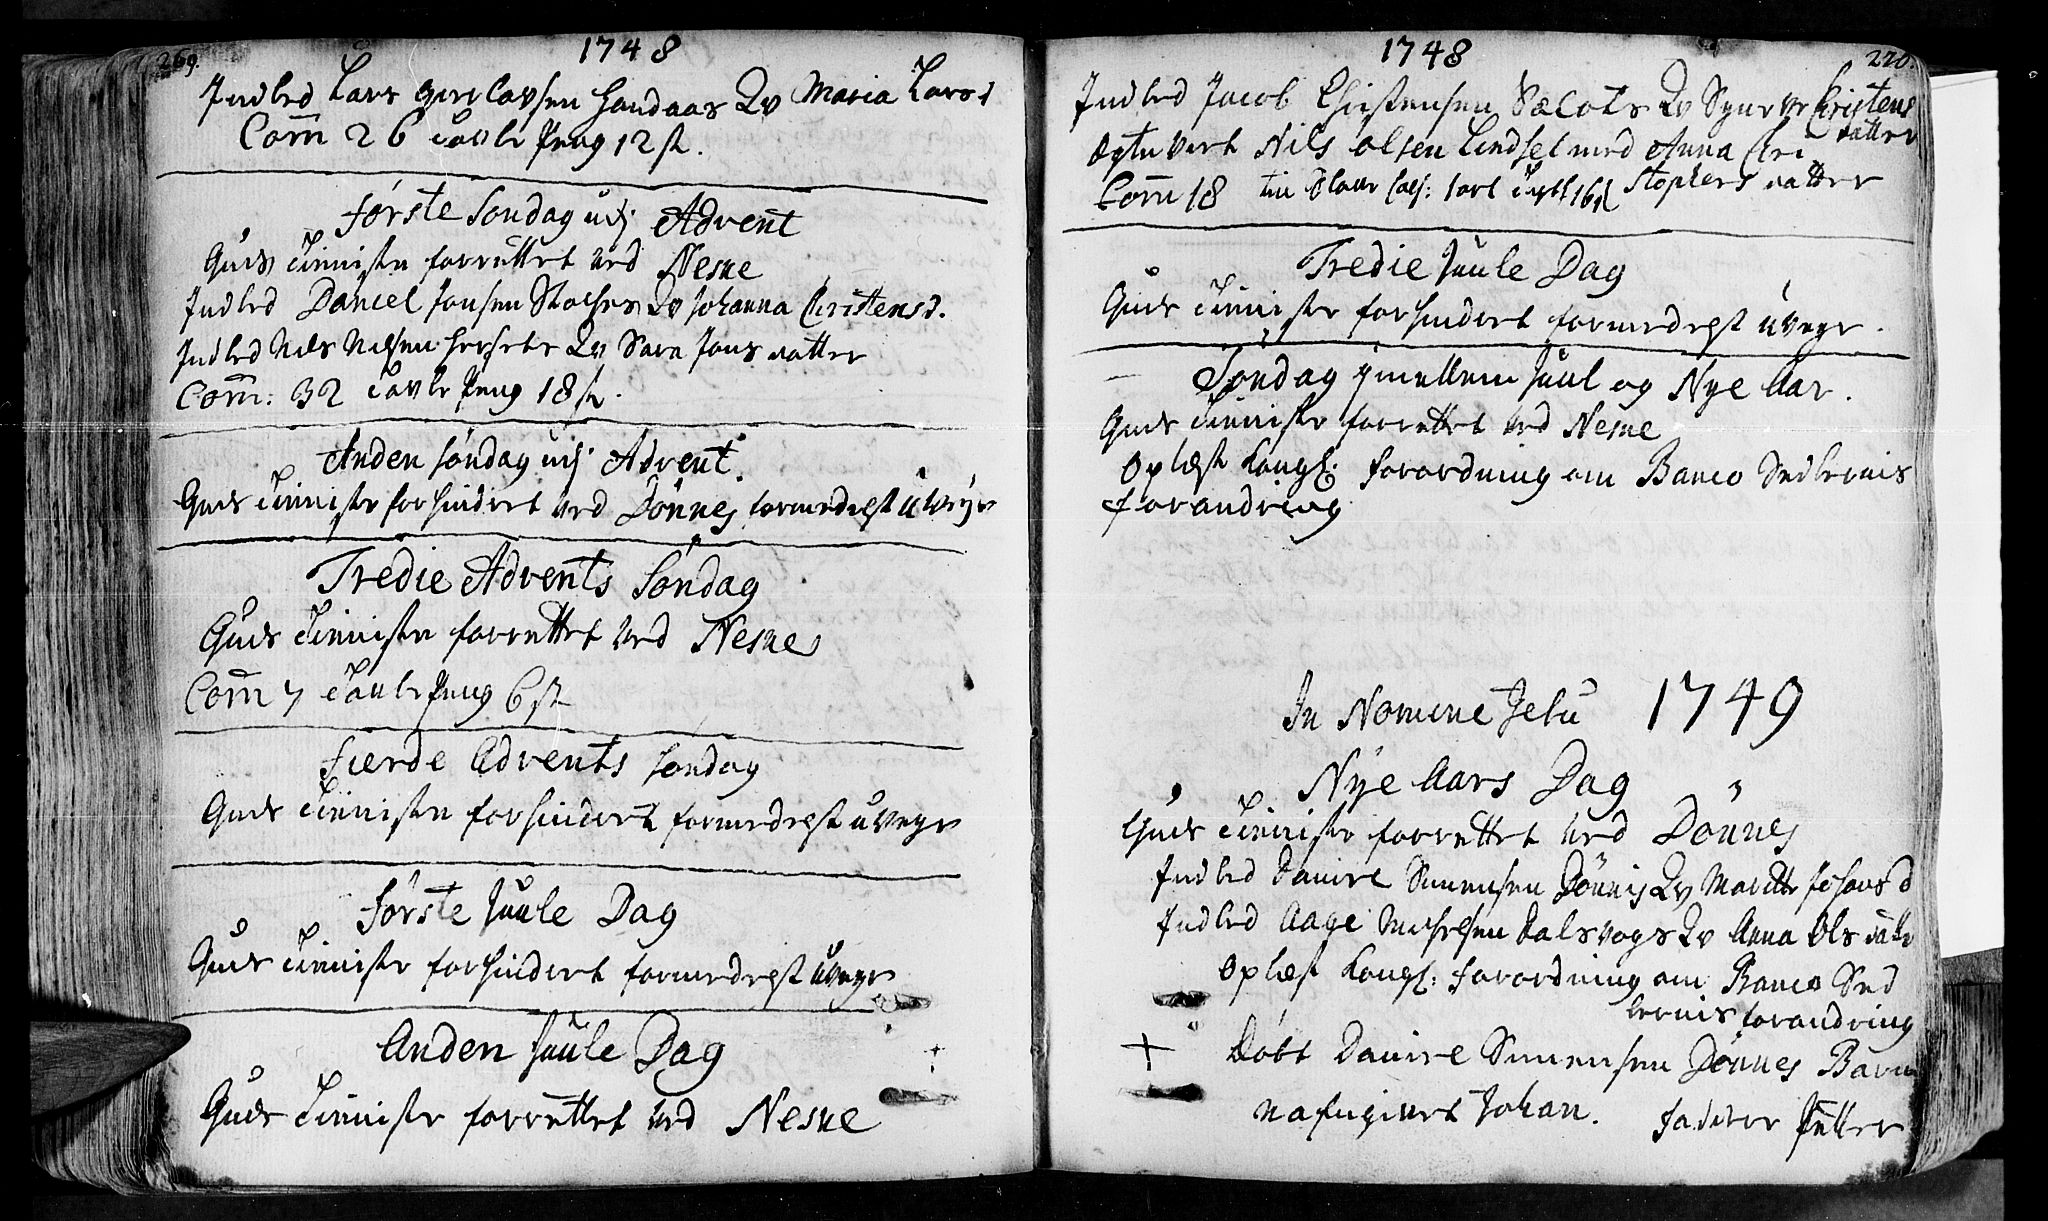 269.
1748
Indled Lars Handaas Qv Maria Larsd
Com 26 Tavle Peng 12 sk.
Første Søndag udj Advent
Guds Tienniste forrettet ved Nesne
Indled Daniel Jonsen Qv Johanna Christensd.
Indled Nils Nilsen Hersetr Qv Sara Jons datter
Com: 32 Tavle Peng 18 sk.
Anden Søndag udj Advent.
Guds Tienniste forhindert ved Dönnes formedelst uveyr
Tredie Advents Søndag
Guds Tienniste forrettet ved Nesne
Com 7 Tavle Peng 6 sk
Fierde Advents Søndag
Guds Tienniste forhindert formedelst uveyr
Første Juule Dag
Guds Tienniste forhindert formedelst uveyr
Anden Juule Dag
Guds Tienniste forrettet ved Nesne
1748
270.
Indled Jacob Christensen Qv Christens
datter
Ægteviet Nils Olsen med Anna Chri
Com 18 Stophers datter
Tredie Juule Dag
Guds Tienniste forhindert formedelst uveyr.
Søndag jmellem Juul og Nye Aar.
Guds Tienniste forrettet ved Nesne
Oplæst Kongl. forordning om Banco Sedlernis
forandring
In Nomine Jesu 1749
Nye Aars Dag
Guds Tienniste forrettet ved Dönnes
Indled Simensen Dönnis Qv
Indled Aage Dalsvogs Qv Anna Ols datter
Oplæst Kongl: forordning om Banco Sed
lernis forandring
+ Döbt Simensen Dönnes Barn
nafngivet Johan. Fadder Petter